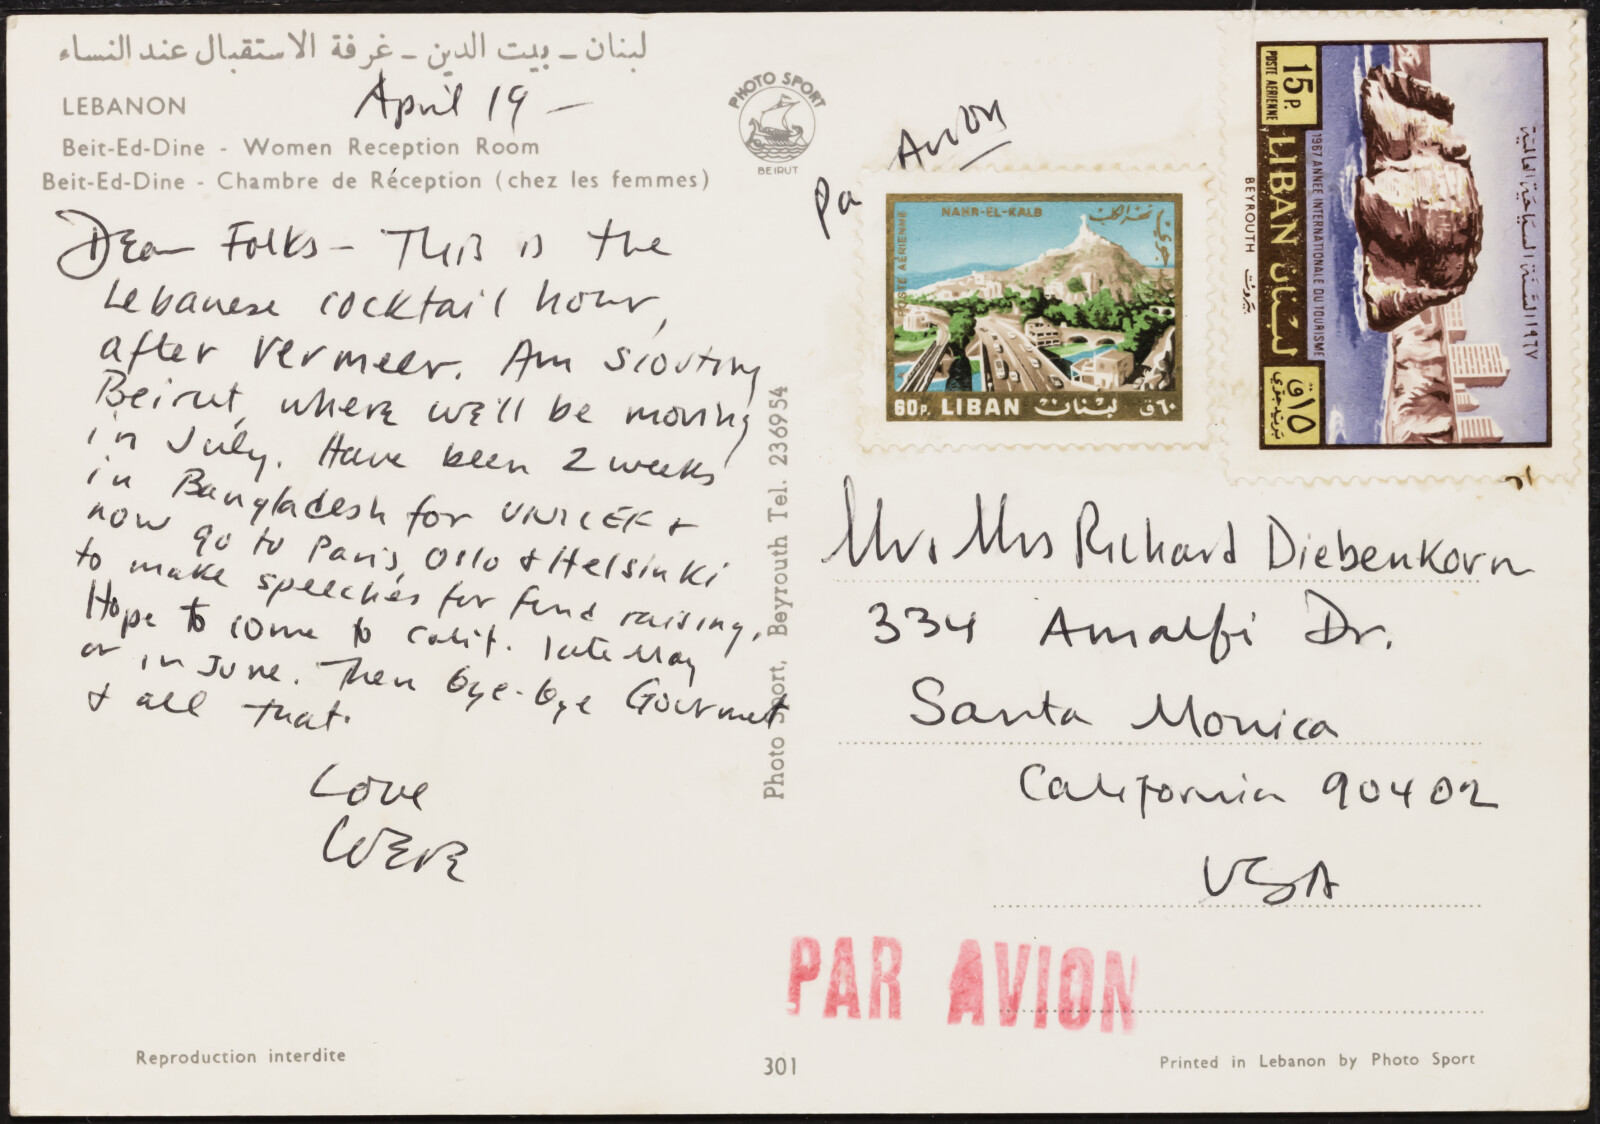 لبنان - بيت الدين - غرفة الاستقبال عند النساء
LEBANON
April 19 -
Beit-Ed-Dine - Women Reception Room
Beit-Ed-Dine - Chambre de Réception (chez les femmes)
Dear Folks - This is the
Lebanese cocktail hour,
after Vermeer. Am scouting
Beirut, where we'll be moving
in July. Have been 2 weeks
in Bangladesh for UNICEF +
now go to Paris, Oslo + Helsinki
to make speeches for fund raising.
Hope to come to Calif. late May
or in June. Then bye-bye Gourmet
+ all that.
Love
PHOTO SPORT
BEIRUT
Photo Sport, Beyrouth Tel. 236954
Par Avion
POSTE AÉRIENNE
NAHR-EL-KALB
60 P. LIBAN لبنان ٦٠ ق
15 P.
POSTE AERIENNE
LIBAN لبنان
١٥ ق
بريد جوي
1967 ANNEE INTERNATIONALE DU TOURISME
BEYROUTH بيروت
١٩٦٧ السنة السياحية العالمية
Mr. Mrs Richard Diebenkorn
334 Amalfi Dr.
Santa Monica
California 90402
USA
PAR AVION
Reproduction interdite
301
Printed in Lebanon by Photo Sport